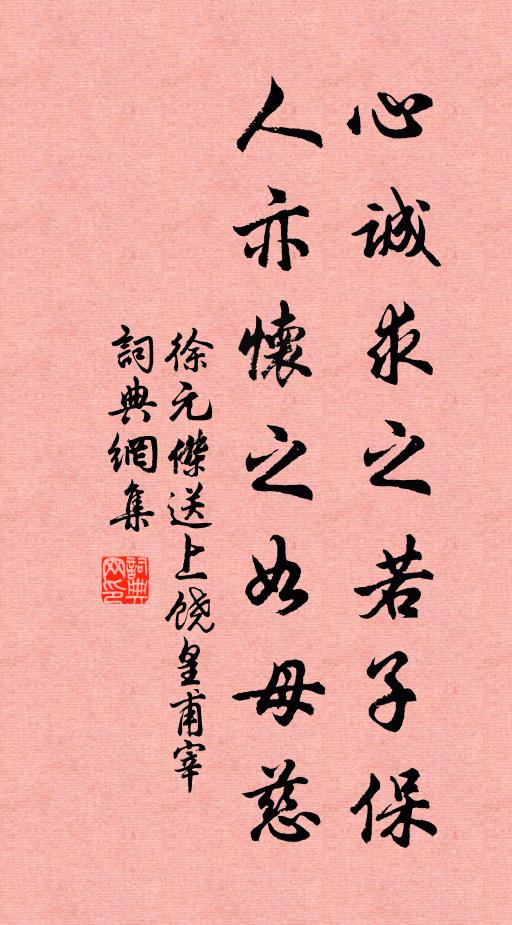 心誠求之若子保
人亦懷之如母慈
徐元傑送上饒皇甫宰
詞典網集
詞典网印